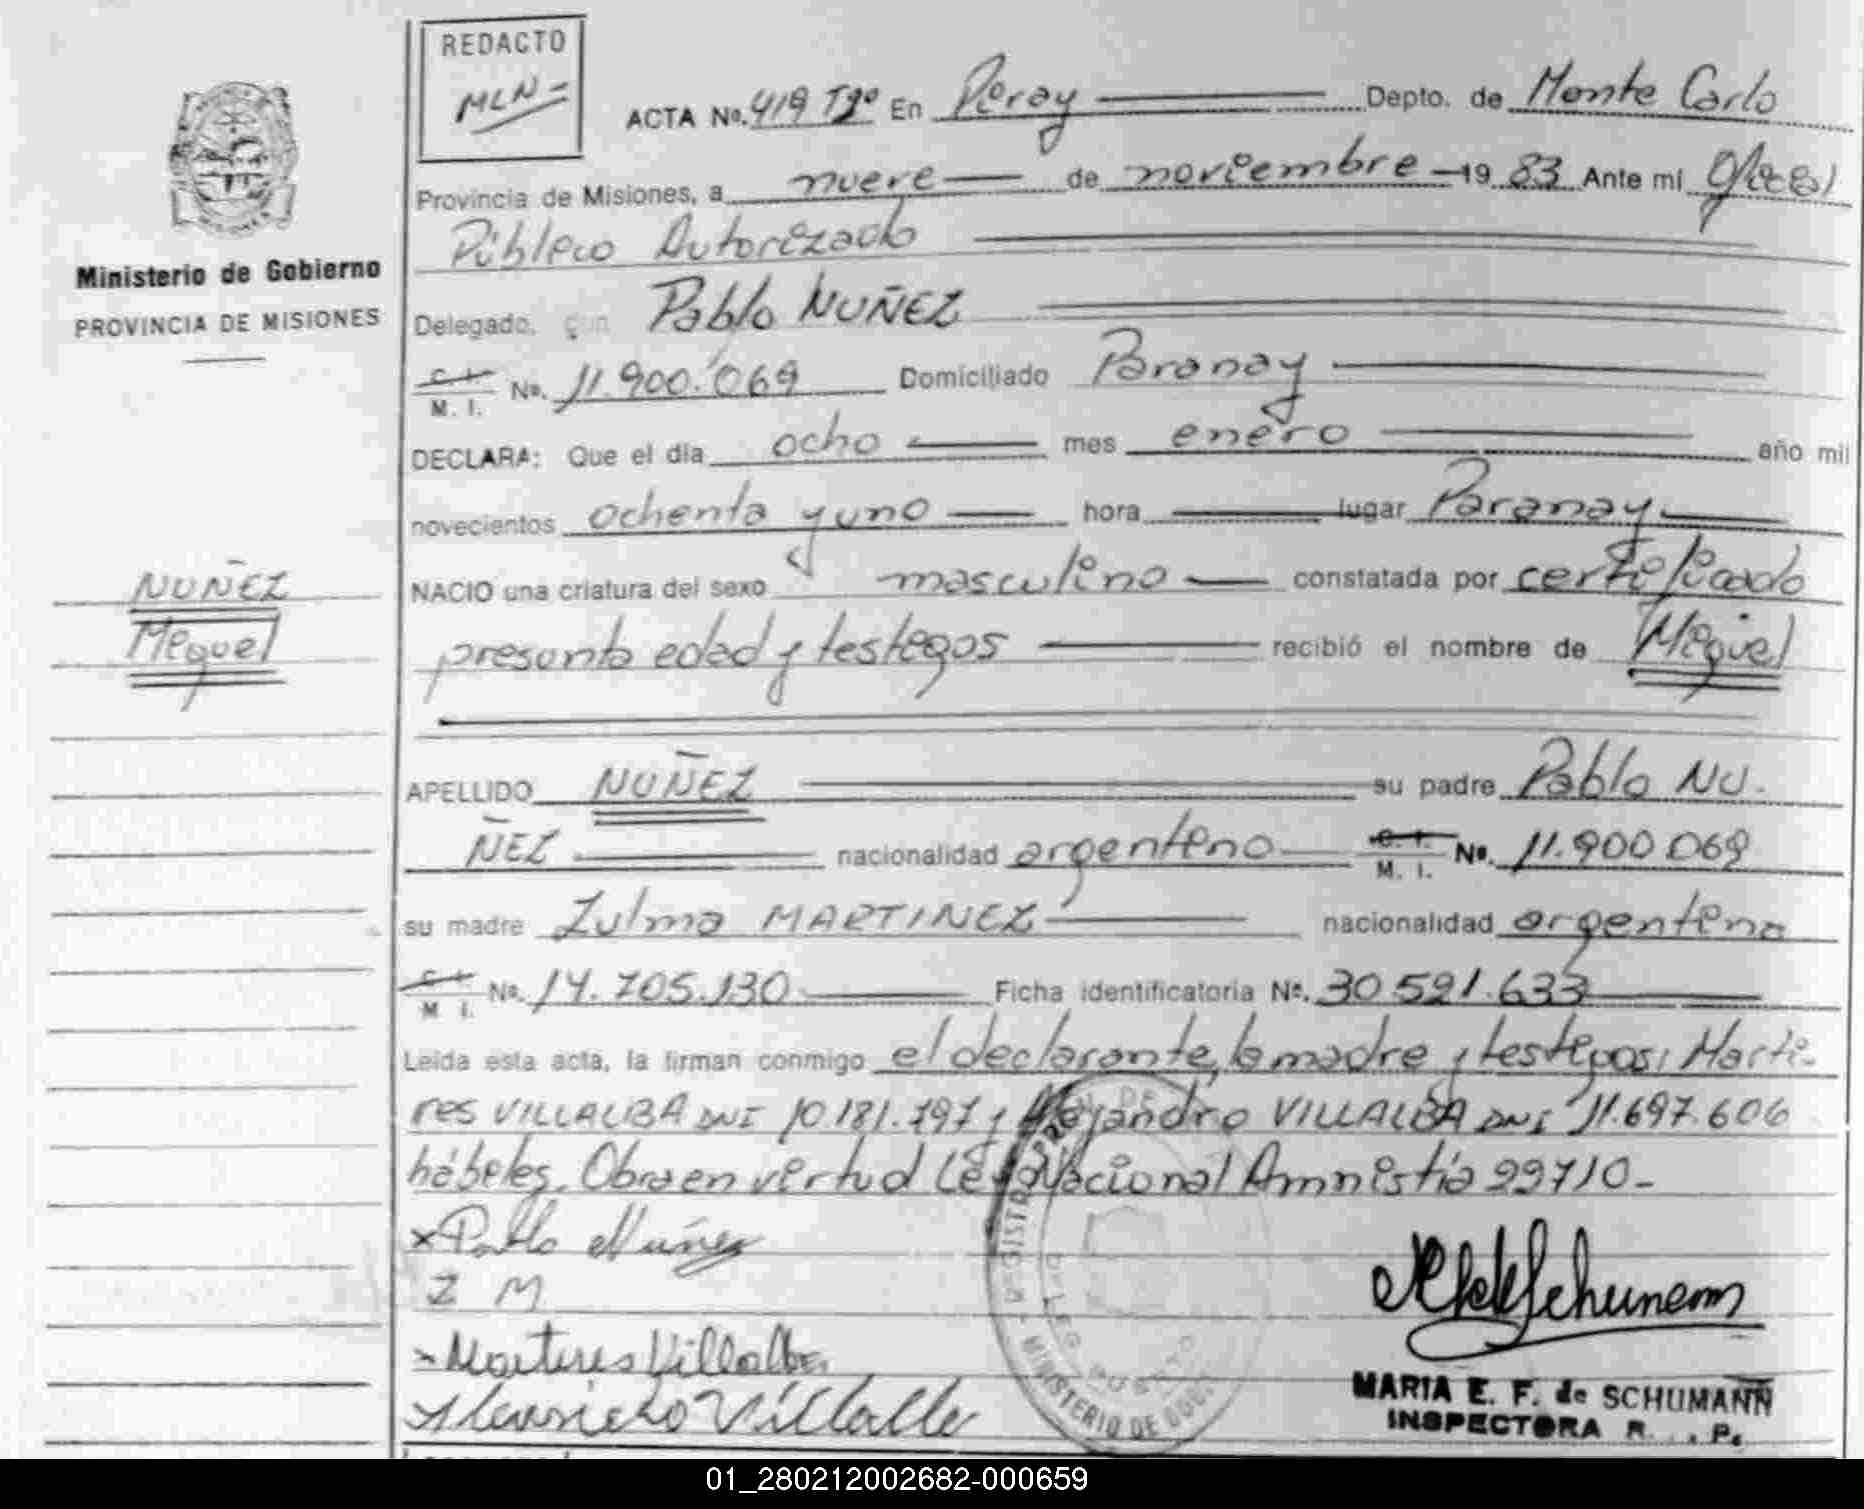 REDACTO
MLN=
ACTA Nº. 419 Tº En Piray Depto. de Monte Carlo
Provincia de Misiones, a nueve de noviembre 19 83 Ante mí Oficial
Público Autorizado
Ministerio de Gobierno
PROVINCIA DE MISIONES
Delegado, con Pablo NUÑEZ
C. I. M. I. Nº. 11.900.069 Domiciliado Paranay
DECLARA: Que el día ocho mes enero año mil
novecientos ochenta y uno hora lugar Paranay
NACIO una criatura del sexo masculino constatada por certificado
NUÑEZ
Miguel
presunta edad y testigos recibió el nombre de Miguel
APELLIDO NUÑEZ su padre Pablo NU-
ÑEZ nacionalidad argentino C. I. M. I. Nº. 11.900.069
su madre Zulma MARTINEZ nacionalidad argentina
C. I. M. I. Nº. 14.705.130 Ficha identificatoria Nº. 30.591.633
Leída esta acta, la firman conmigo el declarante, la madre y testigos: Marti-
res VILLALBA DNI 10.181.797 y Alejandro VILLALBA DNI 11.697.606
hábiles. Obra en virtud Ley Nacional Amnistía 22710-
x Pablo Núñez
Z M
x Martires Villalba
Villalba
MARIA E. F. de SCHUMANN
INSPECTORA R. . P.
MINISTERIO DE GOB
01_280212002682-000659